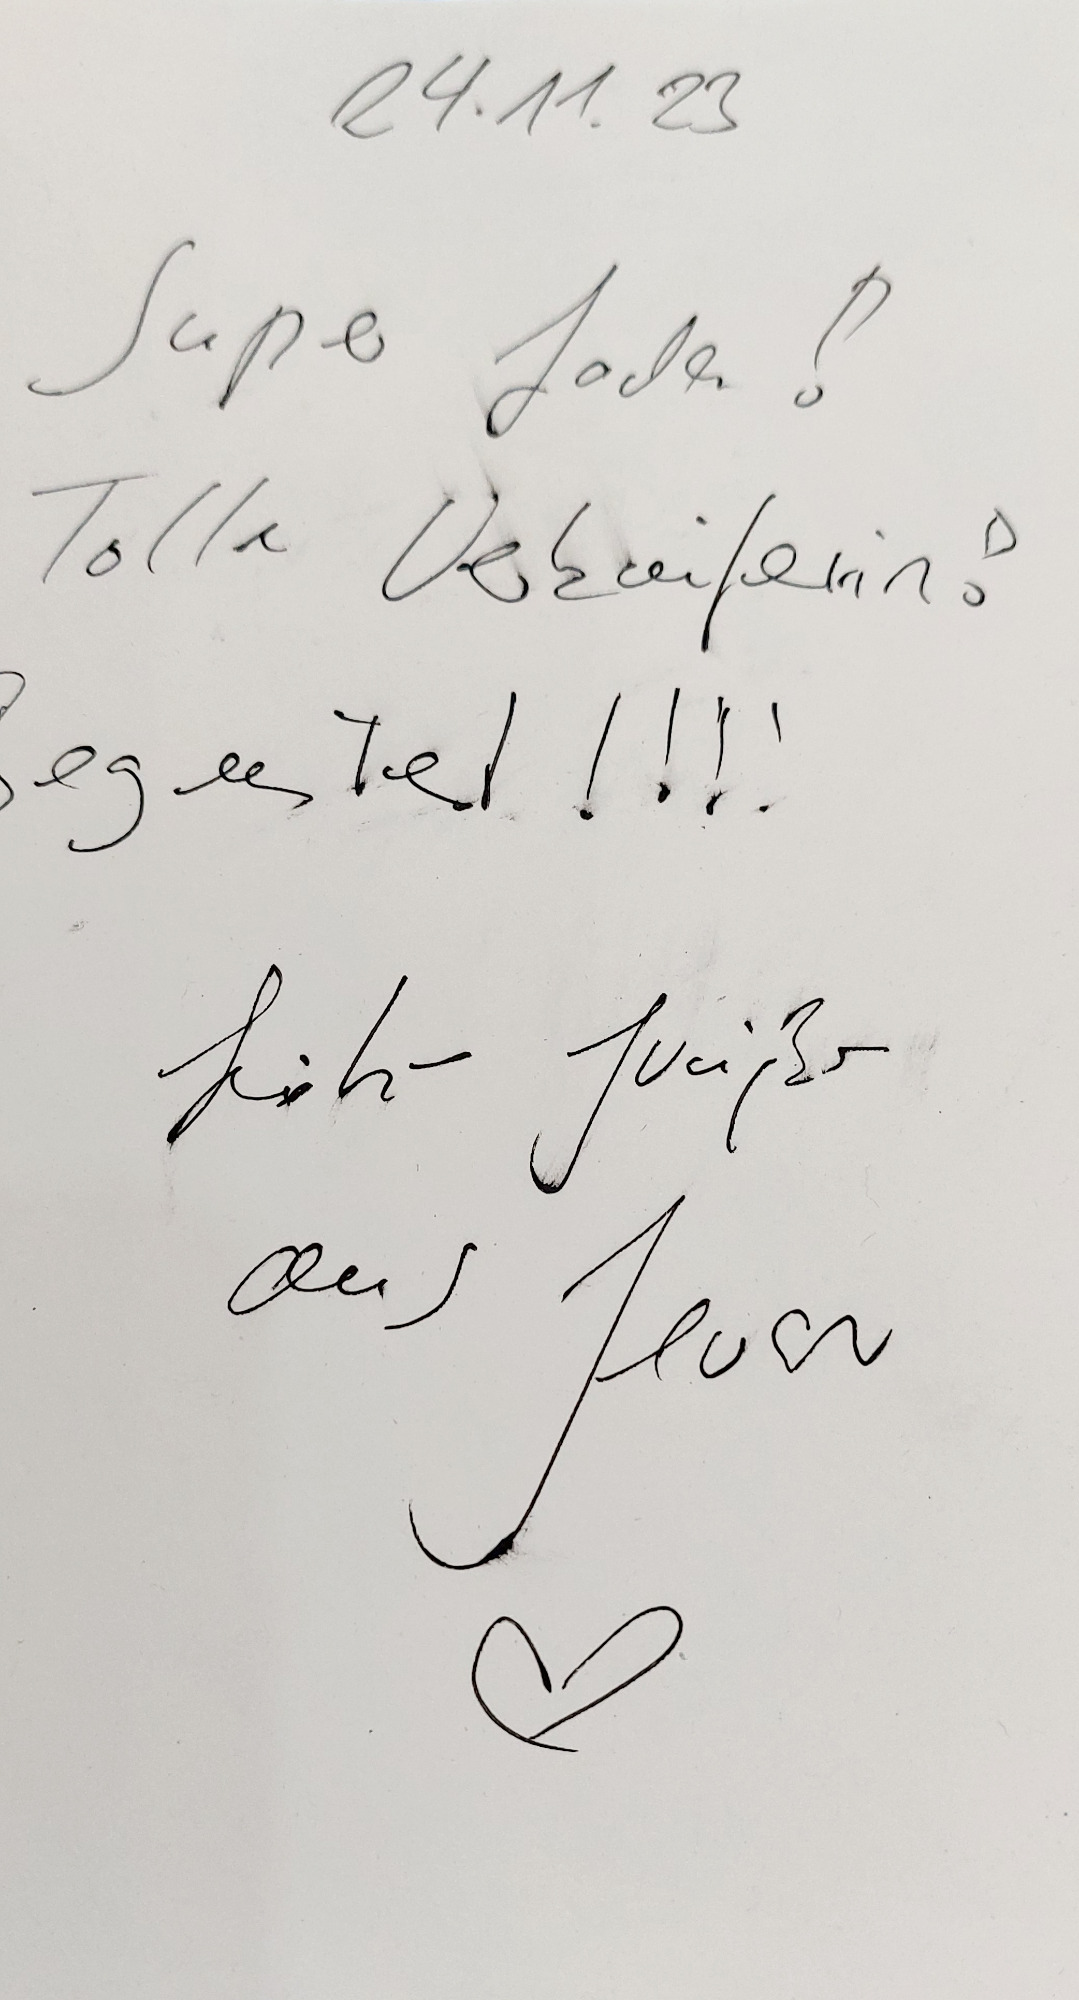 24.11.23
Super Laden!
Tolle Verkäuferin!
Begeistert!!!!
Liebe Grüße
aus Jever